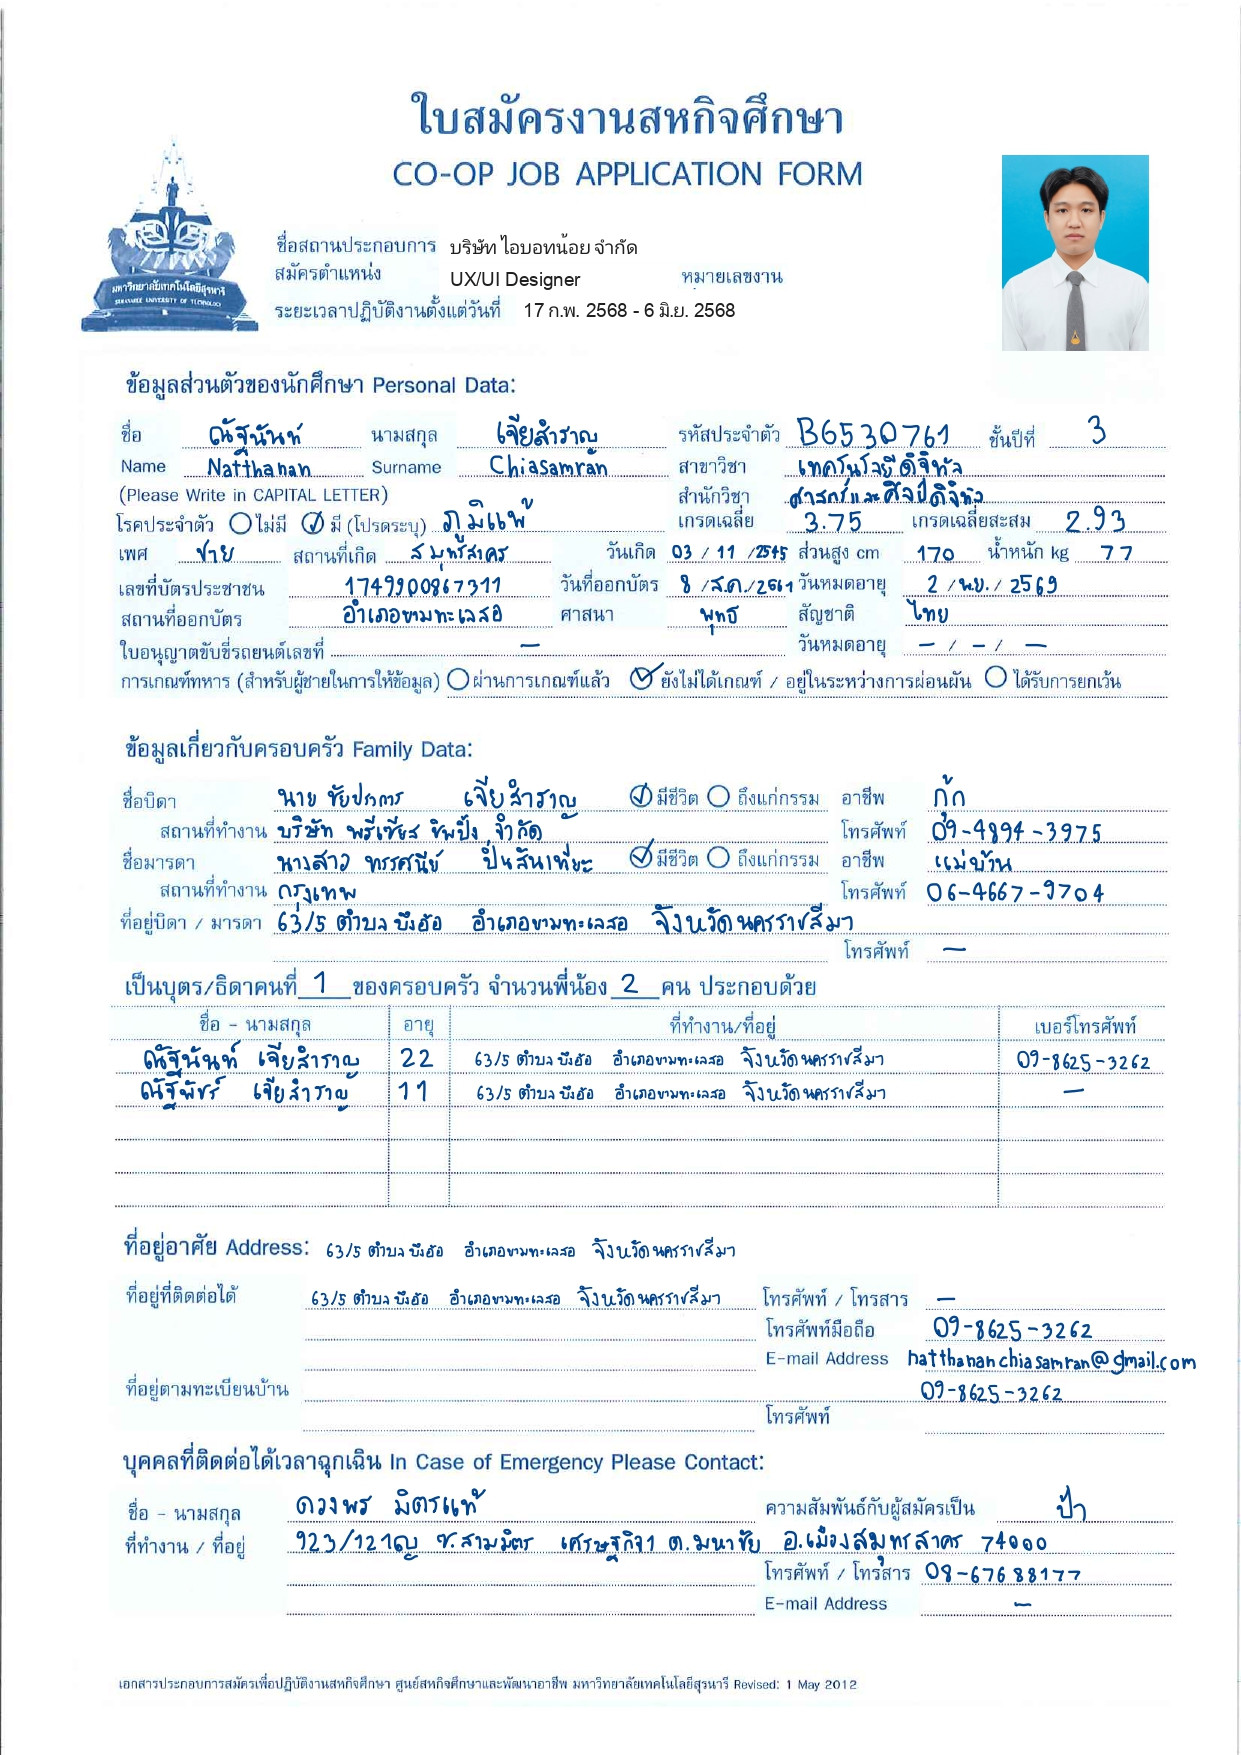 ใบสมัครงานสหกิจศึกษา
CO-OP JOB APPLICATION FORM
มหาวิทยาลัยเทคโนโลยีสุรนารี
SURANAREE UNIVERSITY OF TECHNOLOGY
ชื่อสถานประกอบการ บริษัท ไอบอทน้อย จำกัด
สมัครตำแหน่ง UX/UI Designer หมายเลขงาน
ระยะเวลาปฏิบัติงานตั้งแต่วันที่ 17 ก.พ. 2568 - 6 มิ.ย. 2568
ข้อมูลส่วนตัวของนักศึกษา Personal Data:
ชื่อ ณัฐนันท์ นามสกุล เจียสำราญ รหัสประจำตัว B6530761 ชั้นปีที่ 3
Name Natthanan Surname Chiasamran สาขาวิชา เทคโนโลยีดิจิทัล
(Please Write in CAPITAL LETTER) สำนักวิชา ศาสตร์และศิลป์ดิจิทัล
โรคประจำตัว ไม่มี มี (โปรดระบุ) ภูมิแพ้ เกรดเฉลี่ย 3.75 เกรดเฉลี่ยสะสม 2.93
เพศ ชาย สถานที่เกิด สมุทรสาคร วันเกิด 03 / 11 / 2545 ส่วนสูง cm 170 น้ำหนัก kg 77
เลขที่บัตรประชาชน 1749900867311 วันที่ออกบัตร 8 / ส.ค. / 2561 วันหมดอายุ 2 / พ.ย. / 2569
สถานที่ออกบัตร อำเภอขามทะเลสอ ศาสนา พุทธ สัญชาติ ไทย
ใบอนุญาตขับขี่รถยนต์เลขที่ – วันหมดอายุ – / – / –
การเกณฑ์ทหาร (สำหรับผู้ชายในการให้ข้อมูล) ผ่านการเกณฑ์แล้ว ยังไม่ได้เกณฑ์ / อยู่ในระหว่างการผ่อนผัน ได้รับการยกเว้น
ข้อมูลเกี่ยวกับครอบครัว Family Data:
ชื่อบิดา นาย เจียสำราญ มีชีวิต ถึงแก่กรรม อาชีพ กุ๊ก
สถานที่ทำงาน บริษัท พรีเชียส ชิพปิ้ง จำกัด โทรศัพท์ 09-4894-3975
ชื่อมารดา นางสาว ทรรศนีย์ ปิ่นสันเทียะ มีชีวิต ถึงแก่กรรม อาชีพ แม่บ้าน
สถานที่ทำงาน กรุงเทพ โทรศัพท์ 06-4667-9704
ที่อยู่บิดา / มารดา 63/5 ตำบล บึงอ้อ อำเภอขามทะเลสอ จังหวัดนครราชสีมา
โทรศัพท์ –
เป็นบุตร/ธิดาคนที่ 1 ของครอบครัว จำนวนพี่น้อง 2 คน ประกอบด้วย
ชื่อ - นามสกุล อายุ ที่ทำงาน/ที่อยู่ เบอร์โทรศัพท์
ณัฐนันท์ เจียสำราญ 22 63/5 ตำบล บึงอ้อ อำเภอขามทะเลสอ จังหวัดนครราชสีมา 09-8625-3262
ณัฐพัชร์ เจียสำราญ 11 63/5 ตำบล บึงอ้อ อำเภอขามทะเลสอ จังหวัดนครราชสีมา –
ที่อยู่อาศัย Address: 63/5 ตำบล บึงอ้อ อำเภอขามทะเลสอ จังหวัดนครราชสีมา
ที่อยู่ที่ติดต่อได้ 63/5 ตำบล บึงอ้อ อำเภอขามทะเลสอ จังหวัดนครราชสีมา โทรศัพท์ / โทรสาร –
โทรศัพท์มือถือ 09-8625-3262
E-mail Address natthananchiasamran@gmail.com
ที่อยู่ตามทะเบียนบ้าน 09-8625-3262
โทรศัพท์
บุคคลที่ติดต่อได้เวลาฉุกเฉิน In Case of Emergency Please Contact:
ชื่อ - นามสกุล ดวงพร มิตรแท้ ความสัมพันธ์กับผู้สมัครเป็น ป้า
ที่ทำงาน / ที่อยู่ 923/121ญ ซ.สามมิตร เศรษฐกิจ1 ต.มหาชัย อ.เมืองสมุทรสาคร 74000
โทรศัพท์ / โทรสาร 08-67688177
E-mail Address –
เอกสารประกอบการสมัครเพื่อปฏิบัติงานสหกิจศึกษา ศูนย์สหกิจศึกษาและพัฒนาอาชีพ มหาวิทยาลัยเทคโนโลยีสุรนารี Revised: 1 May 2012